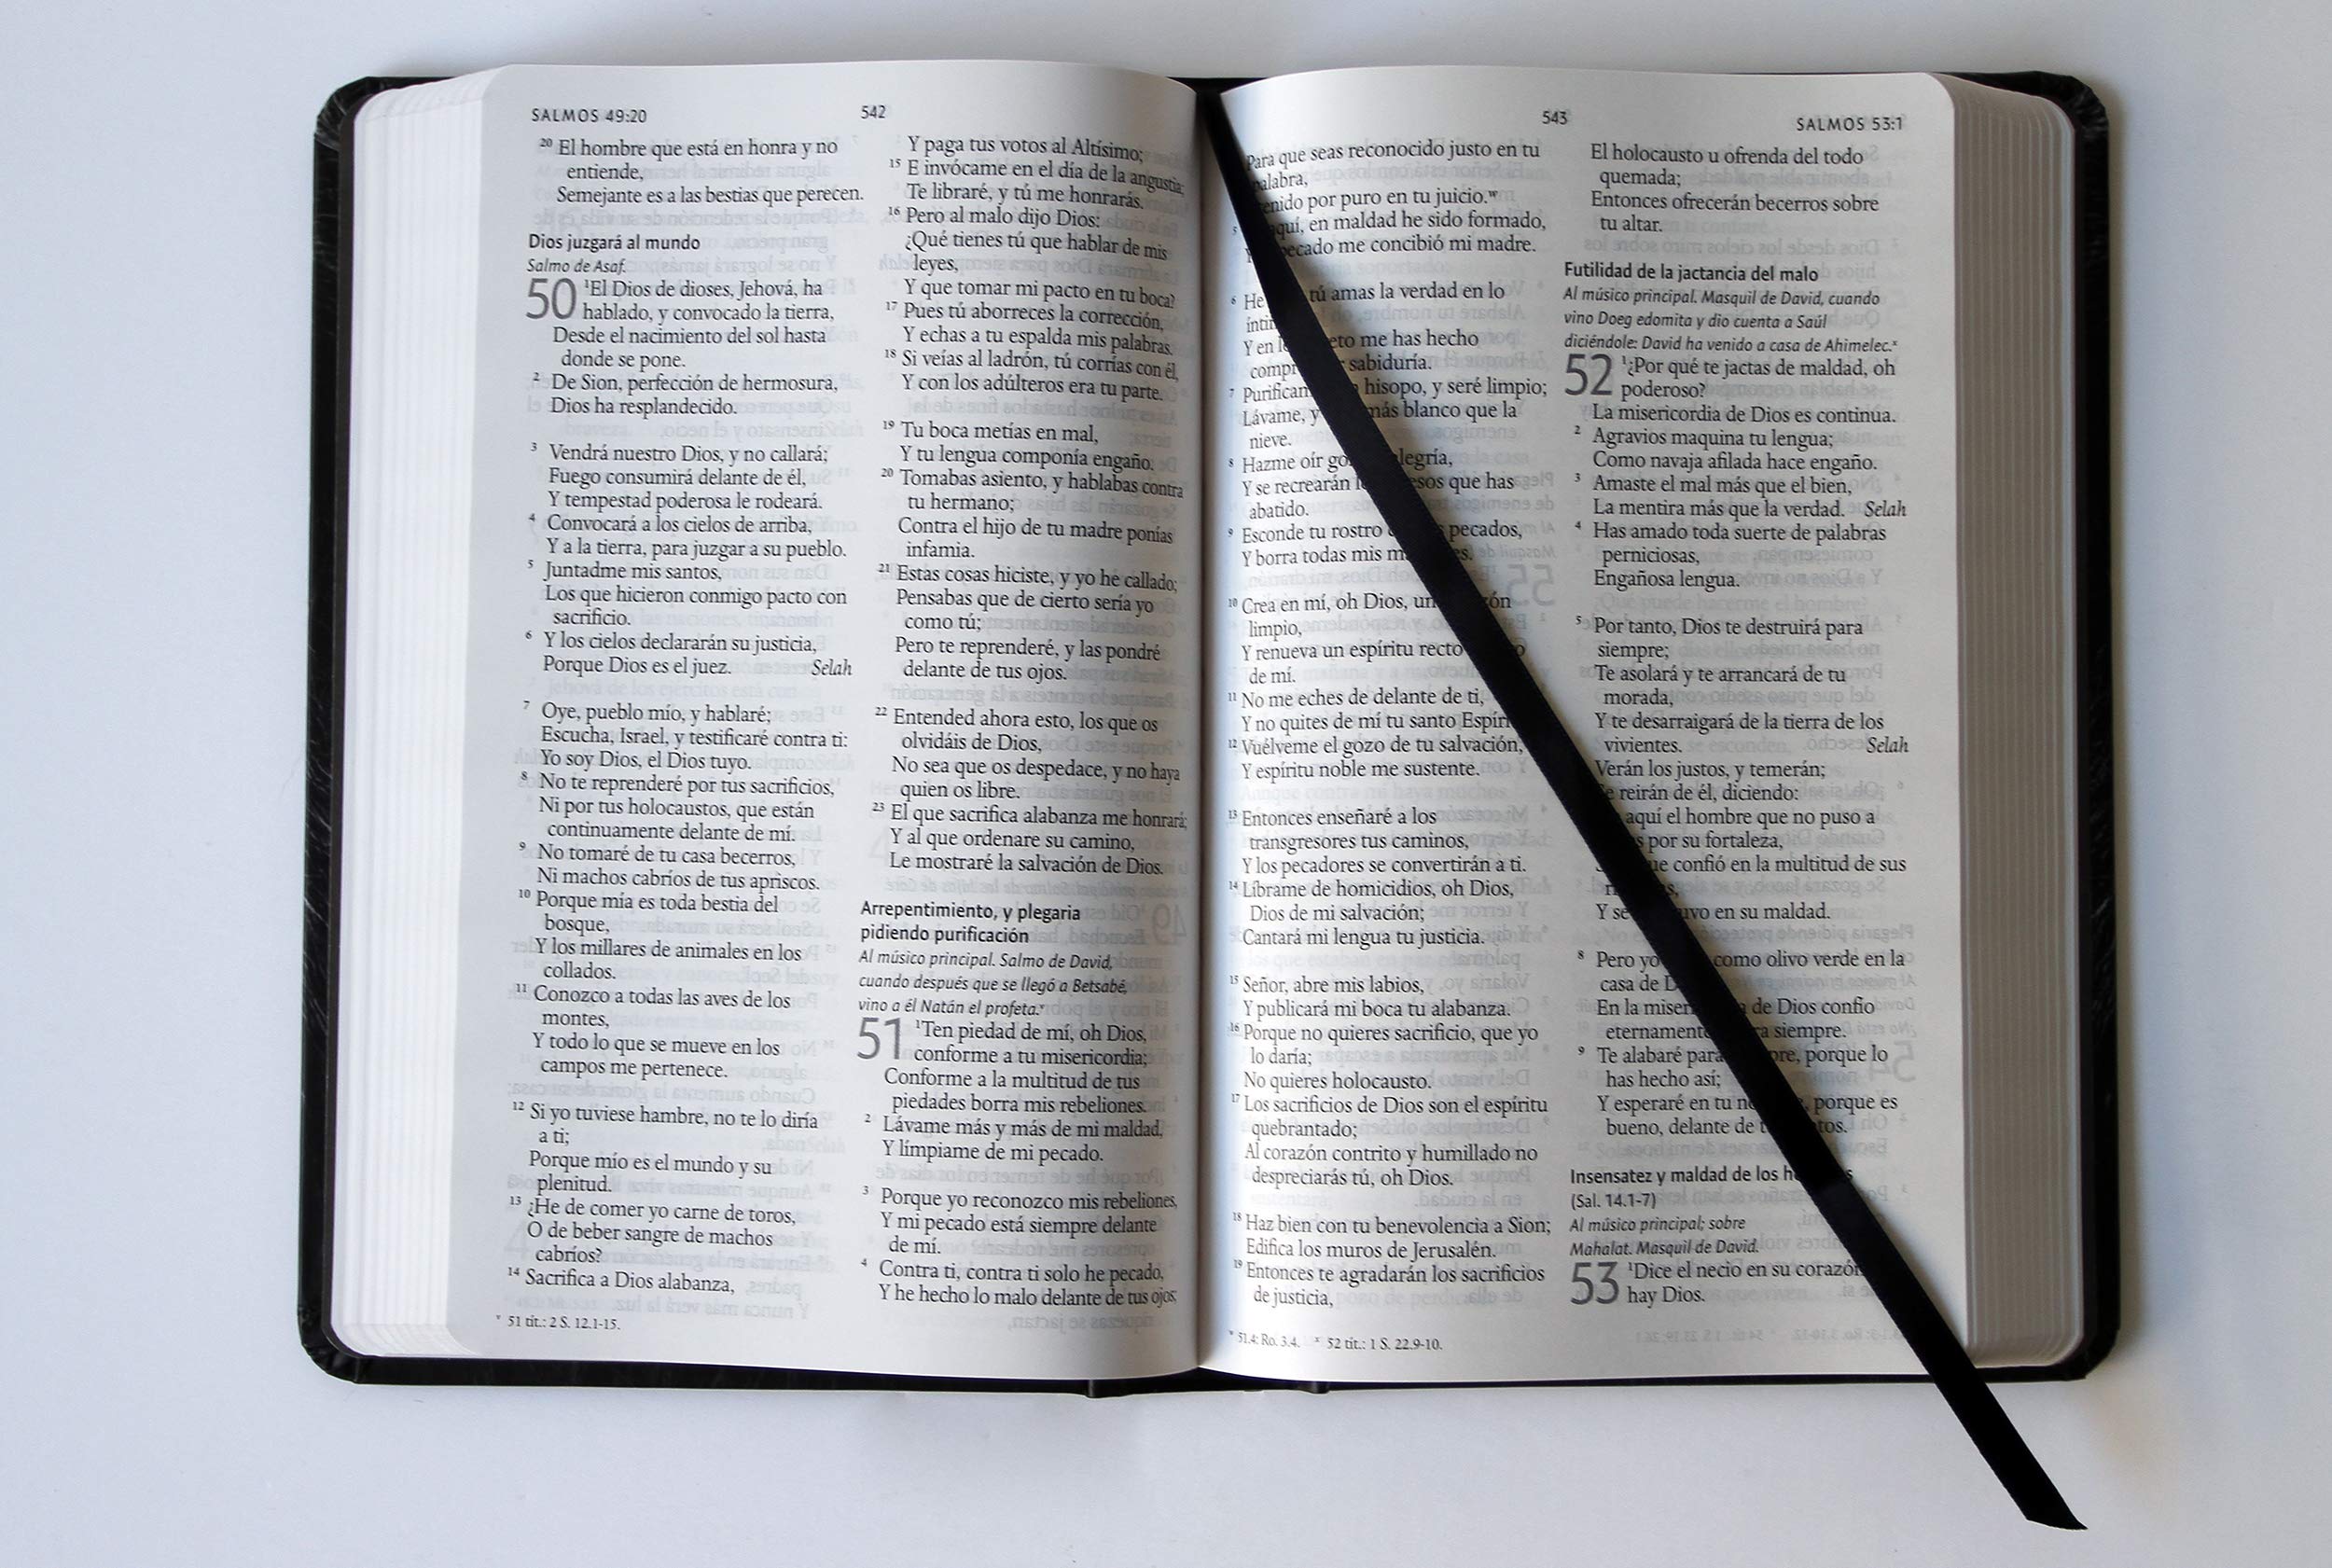 SALMOS 49:20
542
20 El hombre que está en honra y no
entiende,
Semejante es a las bestias que perecen.
Dios juzgará al mundo
Salmo de Asaf.
50 1El Dios de dioses, Jehová, ha
hablado, y convocado la tierra,
Desde el nacimiento del sol hasta
donde se pone.
2 De Sion, perfección de hermosura,
Dios ha resplandecido.
3 Vendrá nuestro Dios, y no callará;
Fuego consumirá delante de él,
Y tempestad poderosa le rodeará.
4 Convocará a los cielos de arriba,
Y a la tierra, para juzgar a su pueblo.
5 Juntadme mis santos,
Los que hicieron conmigo pacto con
sacrificio.
6 Y los cielos declararán su justicia,
Porque Dios es el juez. Selah
7 Oye, pueblo mío, y hablaré;
Escucha, Israel, y testificaré contra ti:
Yo soy Dios, el Dios tuyo.
8 No te reprenderé por tus sacrificios,
Ni por tus holocaustos, que están
continuamente delante de mí.
9 No tomaré de tu casa becerros,
Ni machos cabríos de tus apriscos.
10 Porque mía es toda bestia del
bosque,
Y los millares de animales en los
collados.
11 Conozco a todas las aves de los
montes,
Y todo lo que se mueve en los
campos me pertenece.
12 Si yo tuviese hambre, no te lo diría
a ti;
Porque mío es el mundo y su
plenitud.
13 ¿He de comer yo carne de toros,
O de beber sangre de machos
cabríos?
14 Sacrifica a Dios alabanza,
v 51 tít.: 2 S. 12.1-15.
Y paga tus votos al Altísimo;
15 E invócame en el día de la angustia;
Te libraré, y tú me honrarás.
16 Pero al malo dijo Dios:
¿Qué tienes tú que hablar de mis
leyes,
Y que tomar mi pacto en tu boca?
17 Pues tú aborreces la corrección,
Y echas a tu espalda mis palabras.
18 Si veías al ladrón, tú corrías con él,
Y con los adúlteros era tu parte.
19 Tu boca metías en mal,
Y tu lengua componía engaño.
20 Tomabas asiento, y hablabas contra
tu hermano;
Contra el hijo de tu madre ponías
infamia.
21 Estas cosas hiciste, y yo he callado;
Pensabas que de cierto sería yo
como tú;
Pero te reprenderé, y las pondré
delante de tus ojos.
22 Entended ahora esto, los que os
olvidáis de Dios,
No sea que os despedace, y no haya
quien os libre.
23 El que sacrifica alabanza me honrará;
Y al que ordenare su camino,
Le mostraré la salvación de Dios.
Arrepentimiento, y plegaria
pidiendo purificación
Al músico principal. Salmo de David,
cuando después que se llegó a Betsabé,
vino a él Natán el profeta.v
51 1Ten piedad de mí, oh Dios,
conforme a tu misericordia;
Conforme a la multitud de tus
piedades borra mis rebeliones.
2 Lávame más y más de mi maldad,
Y límpiame de mi pecado.
3 Porque yo reconozco mis rebeliones,
Y mi pecado está siempre delante
de mí.
4 Contra ti, contra ti solo he pecado,
Y he hecho lo malo delante de tus ojos;
543
SALMOS 53:1
Para que seas reconocido justo en tu
palabra,
por puro en tu juicio.w
5 en maldad he sido formado,
me concibió mi madre.
6 He tú amas la verdad en lo
Y en me has hecho
sabiduría.
7 hisopo, y seré limpio;
Lávame, y más blanco que la
nieve.
8 Hazme oír
Y se recrearán que has
abatido.
9 Esconde tu rostro pecados,
Y borra todas mis
10 Crea en mí, oh Dios, un
limpio,
Y renueva un espíritu recto
de mí.
11 No me eches de delante de ti,
Y no quites de mí tu santo
12 Vuélveme el gozo de tu salvación,
Y espíritu noble me sustente.
13 Entonces enseñaré a los
transgresores tus caminos,
Y los pecadores se convertirán a ti.
14 Líbrame de homicidios, oh Dios,
Dios de mi salvación;
Cantará mi lengua tu justicia.
15 Señor, abre mis labios,
Y publicará mi boca tu alabanza.
16 Porque no quieres sacrificio, que yo
lo daría;
No quieres holocausto.
17 Los sacrificios de Dios son el espíritu
quebrantado;
Al corazón contrito y humillado no
despreciarás tú, oh Dios.
18 Haz bien con tu benevolencia a Sion;
Edifica los muros de Jerusalén.
19 Entonces te agradarán los sacrificios
de justicia,
w 51.4: Ro. 3.4. x 52 tít.: 1 S. 22.9-10.
El holocausto u ofrenda del todo
quemada;
Entonces ofrecerán becerros sobre
tu altar.
Futilidad de la jactancia del malo
Al músico principal. Masquil de David, cuando
vino Doeg edomita y dio cuenta a Saúl
diciéndole: David ha venido a casa de Ahimelec.x
52 1¿Por qué te jactas de maldad, oh
poderoso?
La misericordia de Dios es continua.
2 Agravios maquina tu lengua;
Como navaja afilada hace engaño.
3 Amaste el mal más que el bien,
La mentira más que la verdad. Selah
4 Has amado toda suerte de palabras
perniciosas,
Engañosa lengua.
5 Por tanto, Dios te destruirá para
siempre;
Te asolará y te arrancará de tu
morada,
Y te desarraigará de la tierra de los
vivientes. Selah
Verán los justos, y temerán;
reirán de él, diciendo:
aquí el hombre que no puso a
por su fortaleza,
confió en la multitud de sus
Y se en su maldad.
8 Pero yo como olivo verde en la
casa de
En la de Dios confío
eternamente siempre.
9 Te alabaré para porque lo
has hecho así;
Y esperaré en tu porque es
bueno, delante de
Insensatez y maldad de los
(Sal. 14.1-7)
Al músico principal; sobre
Mahalat. Masquil de David.
53 1Dice el necio en su corazón
hay Dios.